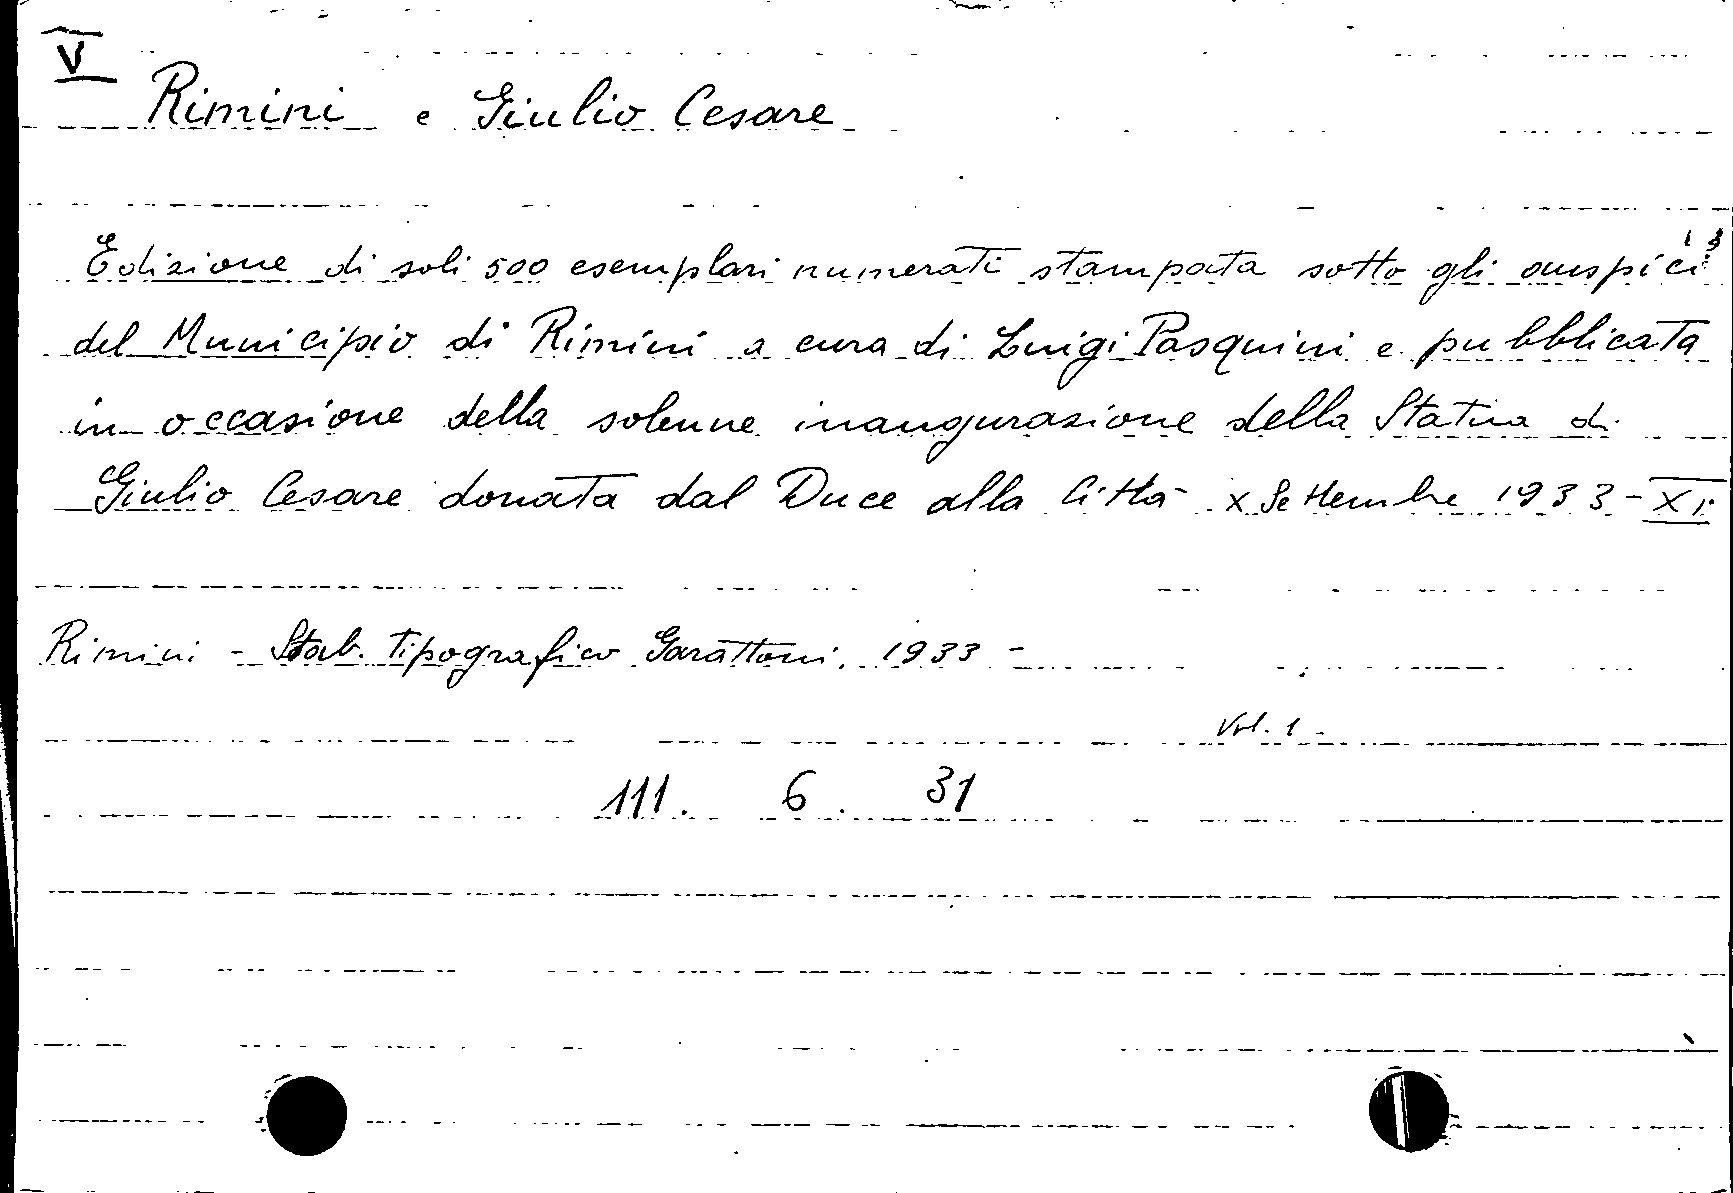 V
Rimini e Giulio Cesare
Edizione di soli 500 esemplari numerati stampata sotto gli auspici
del Municipio di Rimini a cura di Luigi Pasquini e pubblicata
in occasione della solenne inaugurazione della Statua di
Giulio Cesare donata dal Duce alla Città X Settembre 1933 - XI.
Rimini - Stab. Tipografico Garattoni, 1933 -
Vol. 1 -
111. 6. 31